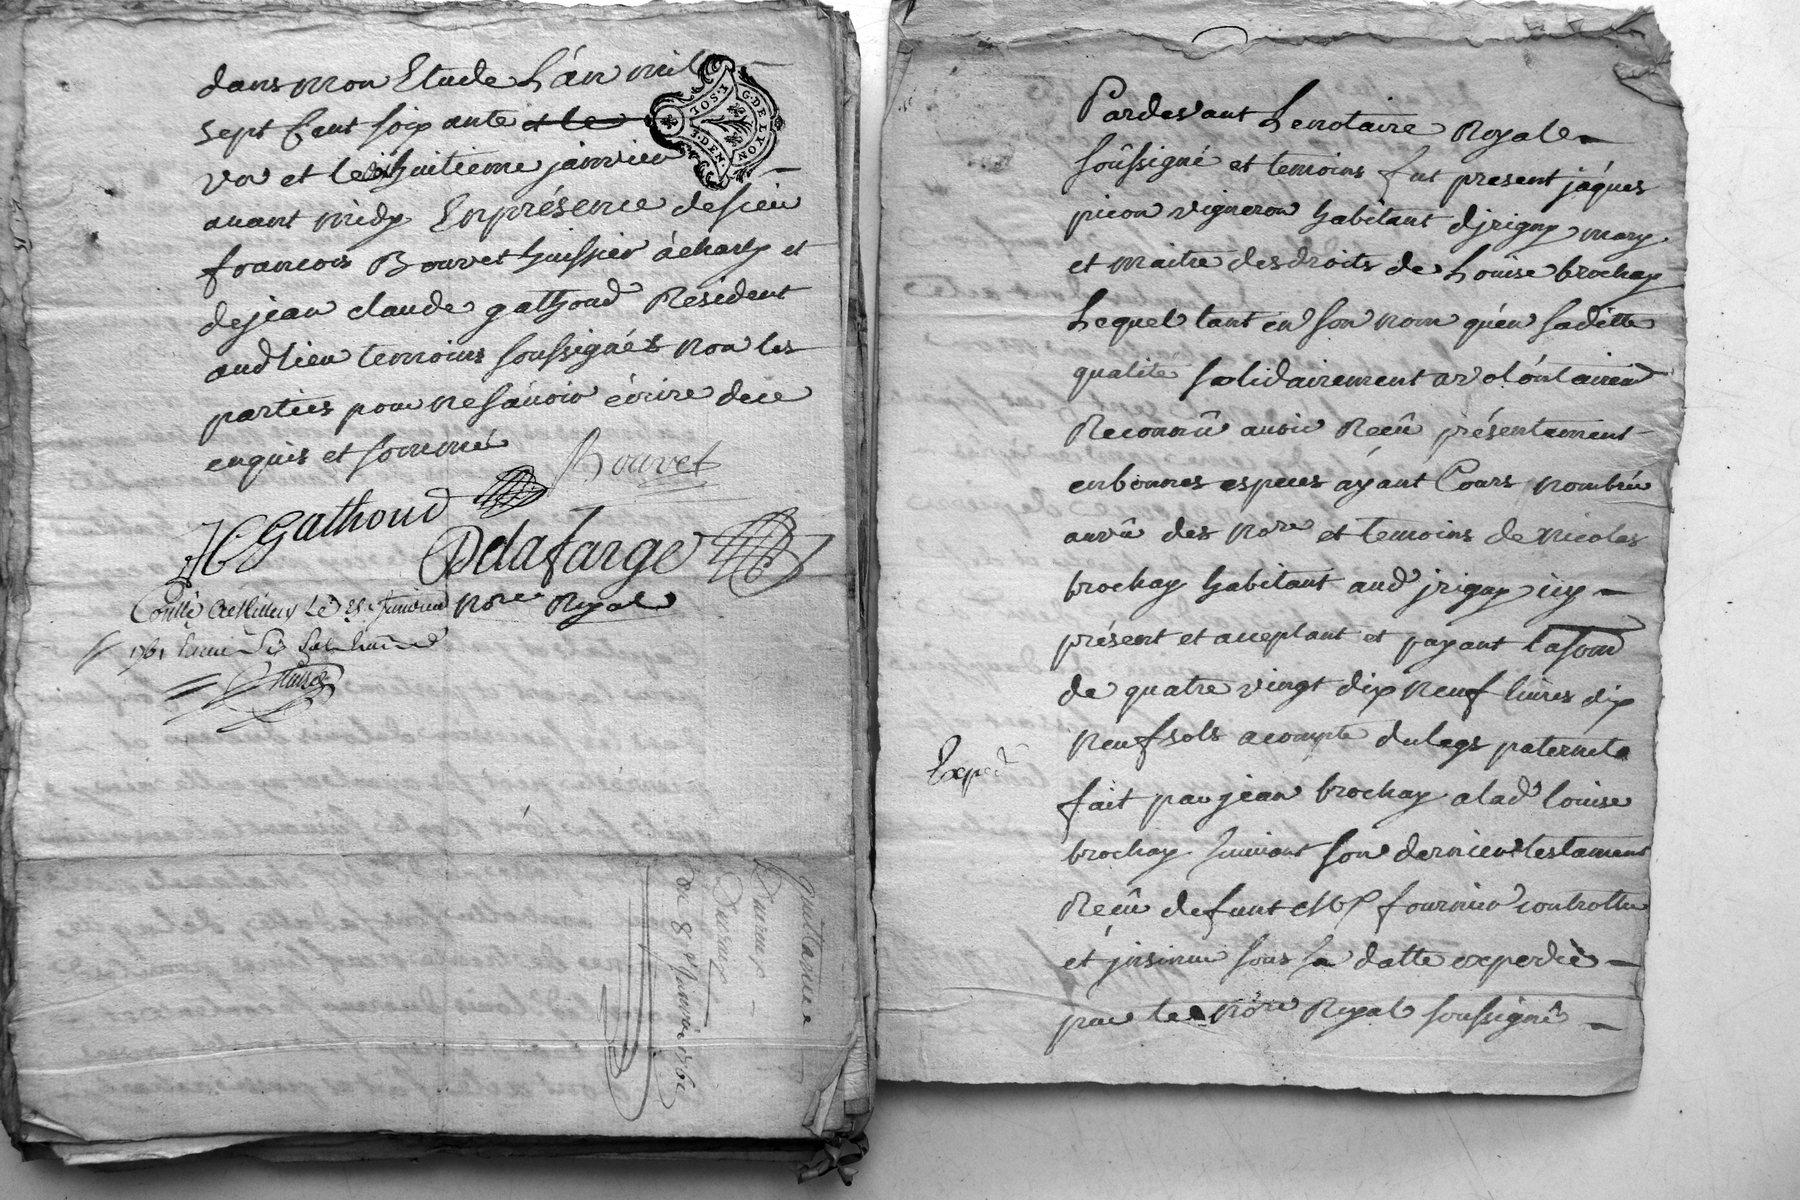 dans mon Etude L'an mil
sept Cent soix ante et le
un et le dixhuitieme janvier
avant midy En présence de sieu
francois Bouvet huissier à charly et
de jean claude gathoud Résident
aud lieu temoins soussignés non les
parties pour ne sávoir écrire de ce
enquis et sommé
Bouvet
JC Gathoud
Delafarge
Nore Royal
1761
G. DE LYON
1. SOL.
4. DEN.
quittance
Ducreux
Ducreux
du 8e Janvier 1761
Pardevant Le notaire Royale
soûssigné et temoins fut present jáques
picon vigneron habitant d'jrigny mary
et maitre des droits de Loüise brochay
Lequel tant en son nom qu'en sa ditte
qualité solidairement a volóntairemt
Reconnû avoir Reçû présentement
en bonnes especes áyant Cours nombré
au vû des Nore et temoins de nicolas
brochay habitant aud jrigny icy
présent et acceptant et payant la som
de quatre vingt dix neuf livres dix
neuf sols a compte du legs paternel
fait par jean brochay a lad louise
brochay suivant son dernier testament
Reçû defunt Me fournier controllé
et jnsinué sous sa datte expedié
par le Nore Royal soussigné
Exped